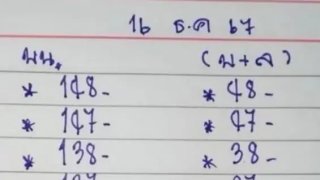 16 ธ.ค 67
บน. (บ+ล)
* 148- * 48-
* 147- * 47-
* 138- * 38-